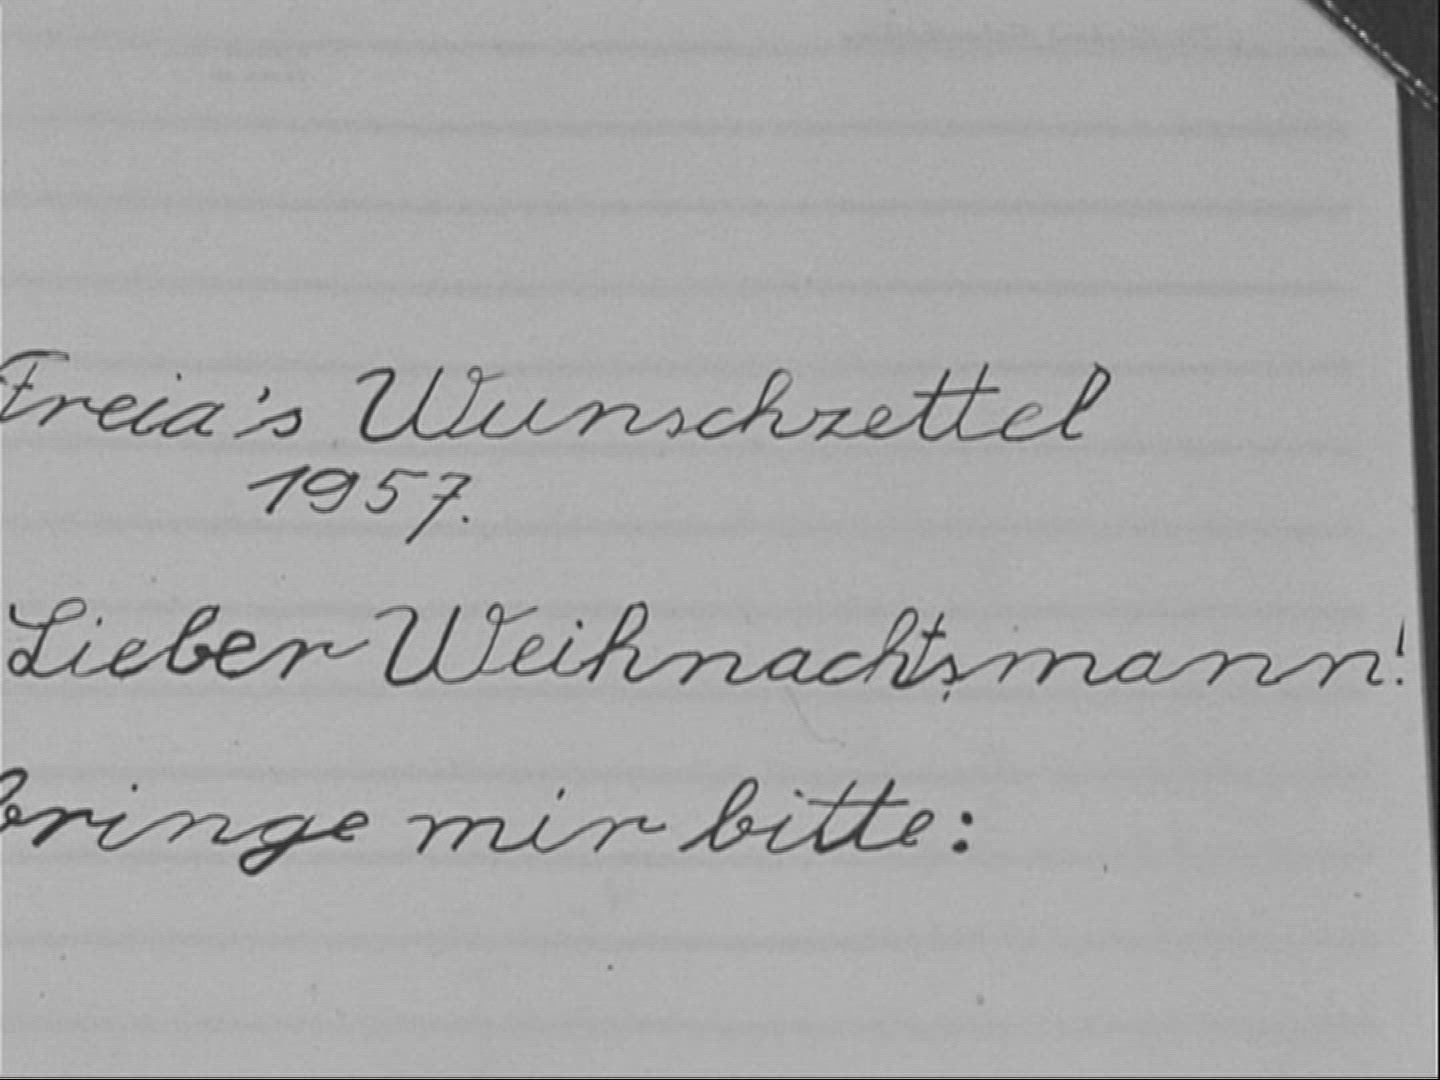 Freia's Wunschzettel
1957.
Lieber Weihnachtsmann!
bringe mir bitte: